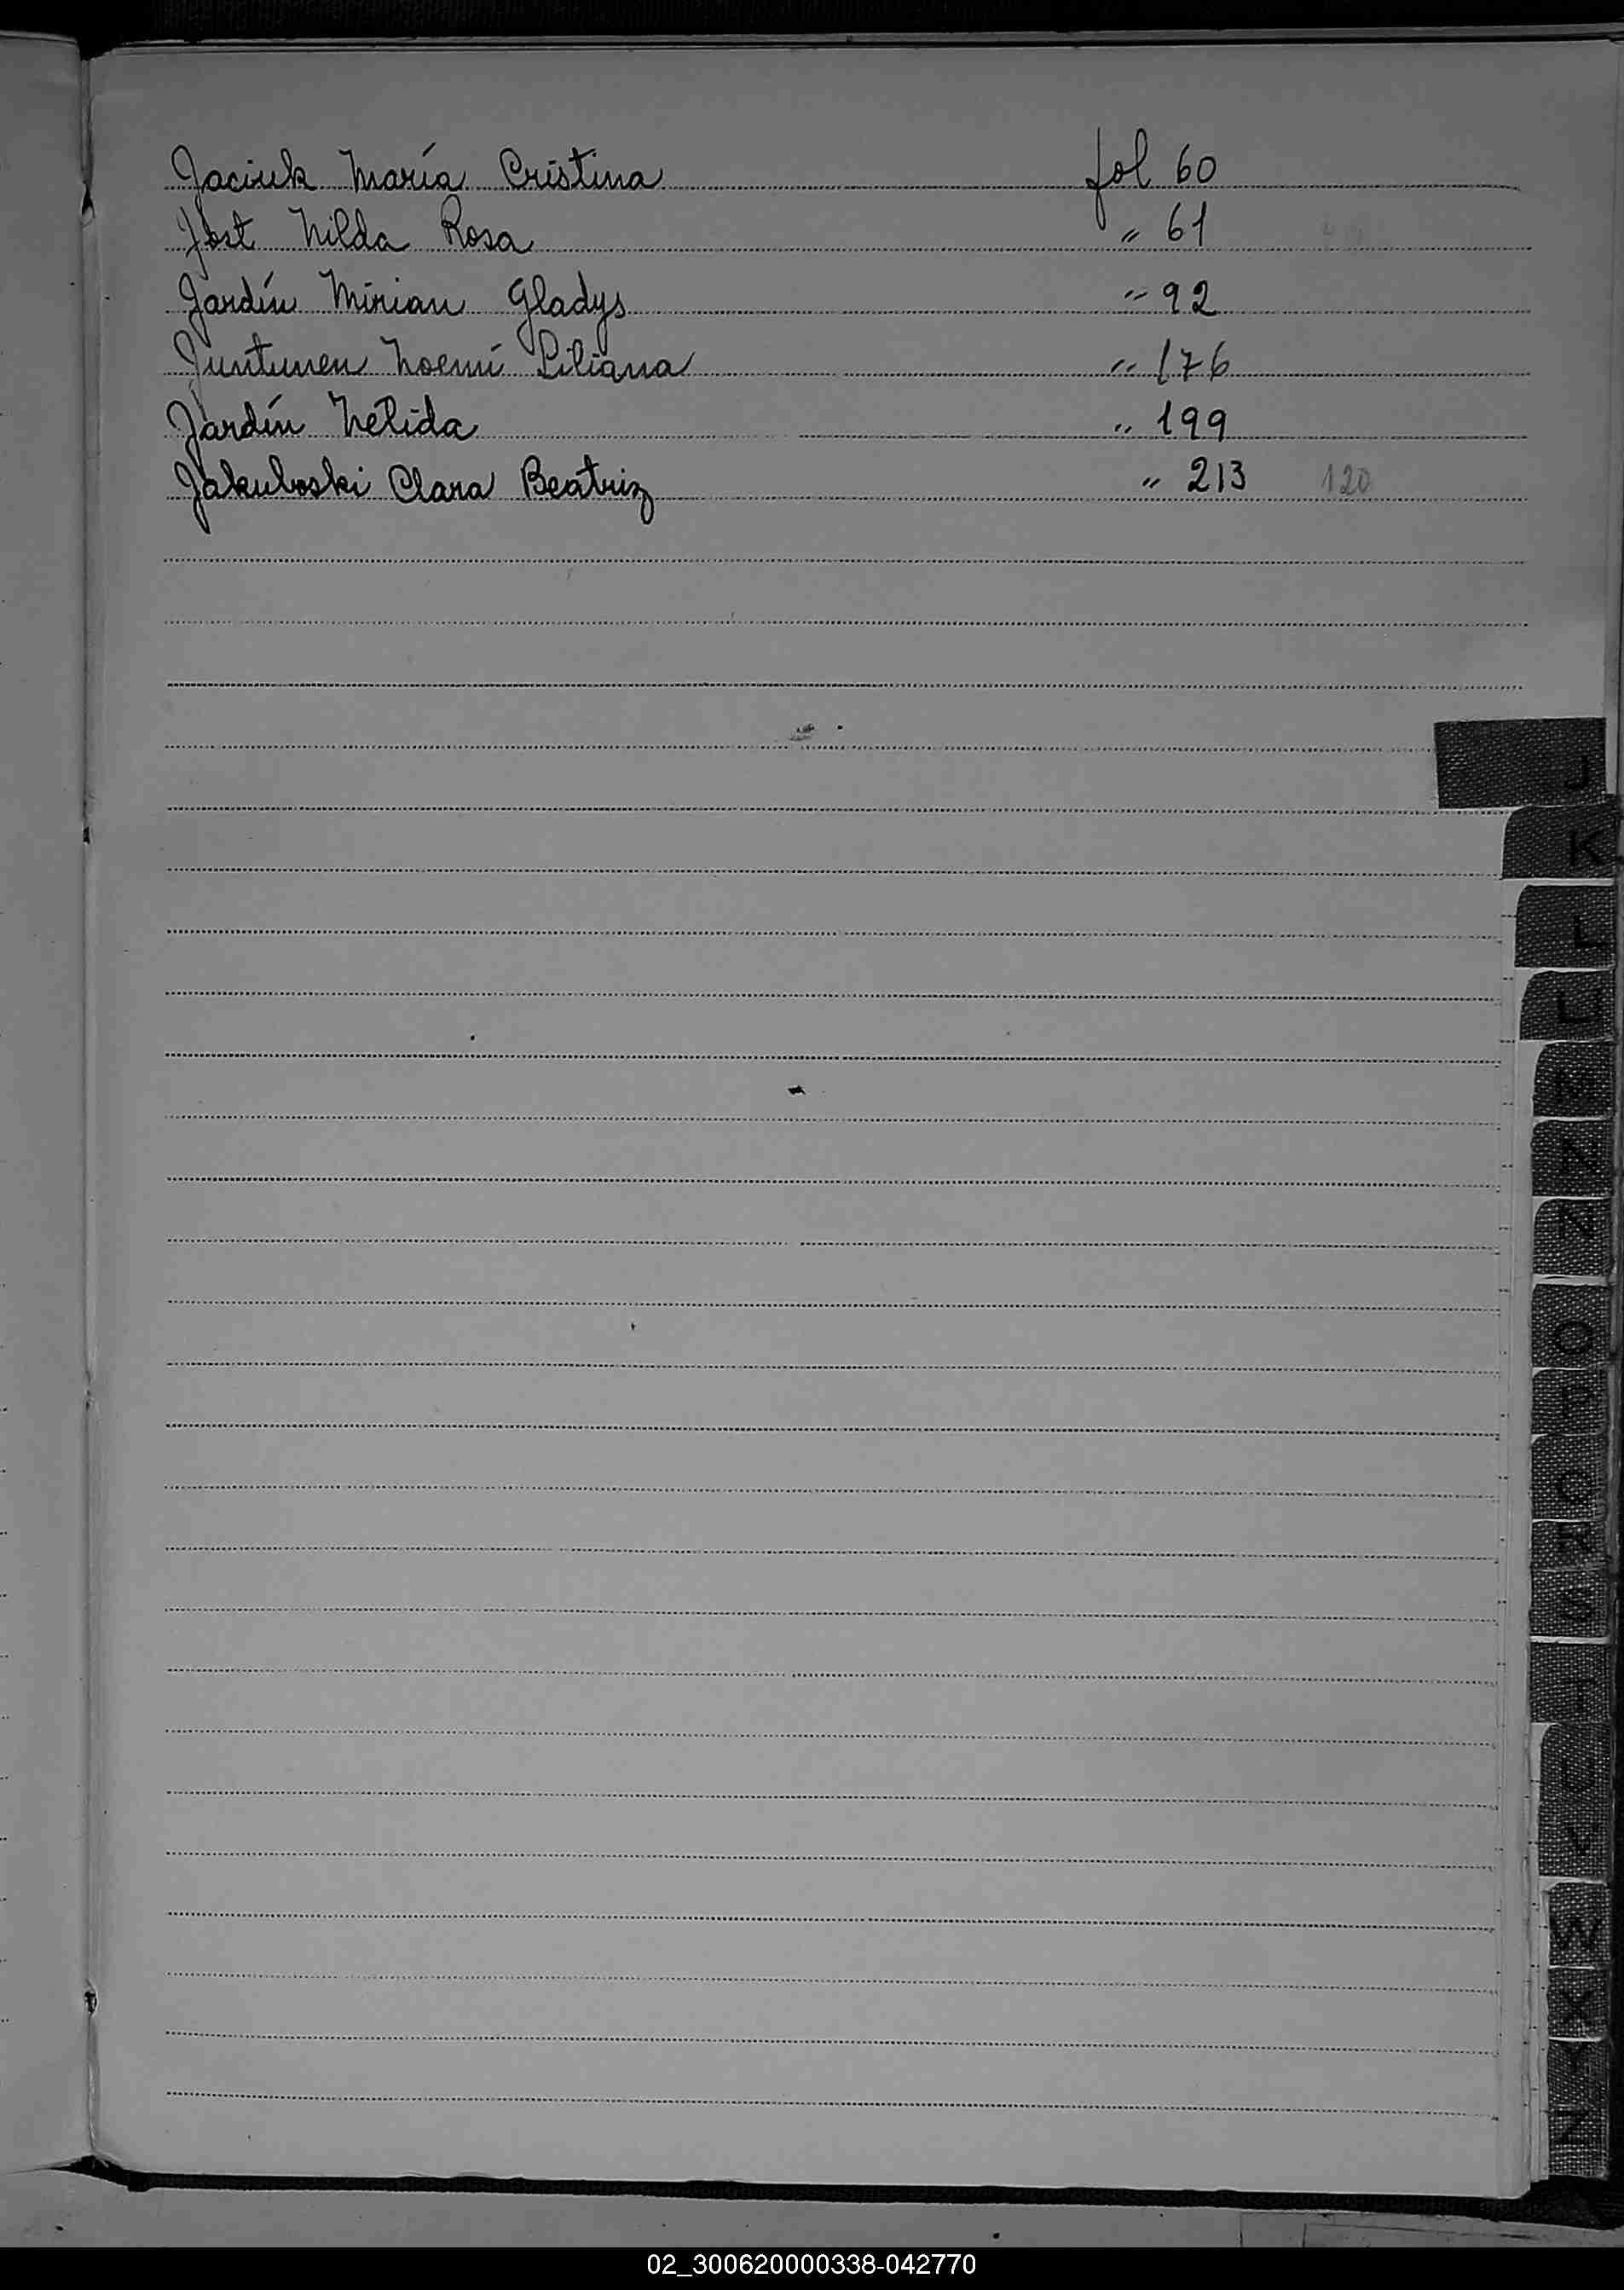 Jaciuk María Cristina fol 60
Jost Nilda Rosa " 61
Jardín Mirian Gladys " 92
Juntunen Noemí Liliana " 176
Jardín Nélida " 199
Jakuboski Clara Beatriz " 213 120
J
K
L
LL
M
N
Ñ
O
P
Q
R
S
T
U
V
W
X
Y
Z
02_300620000338-042770